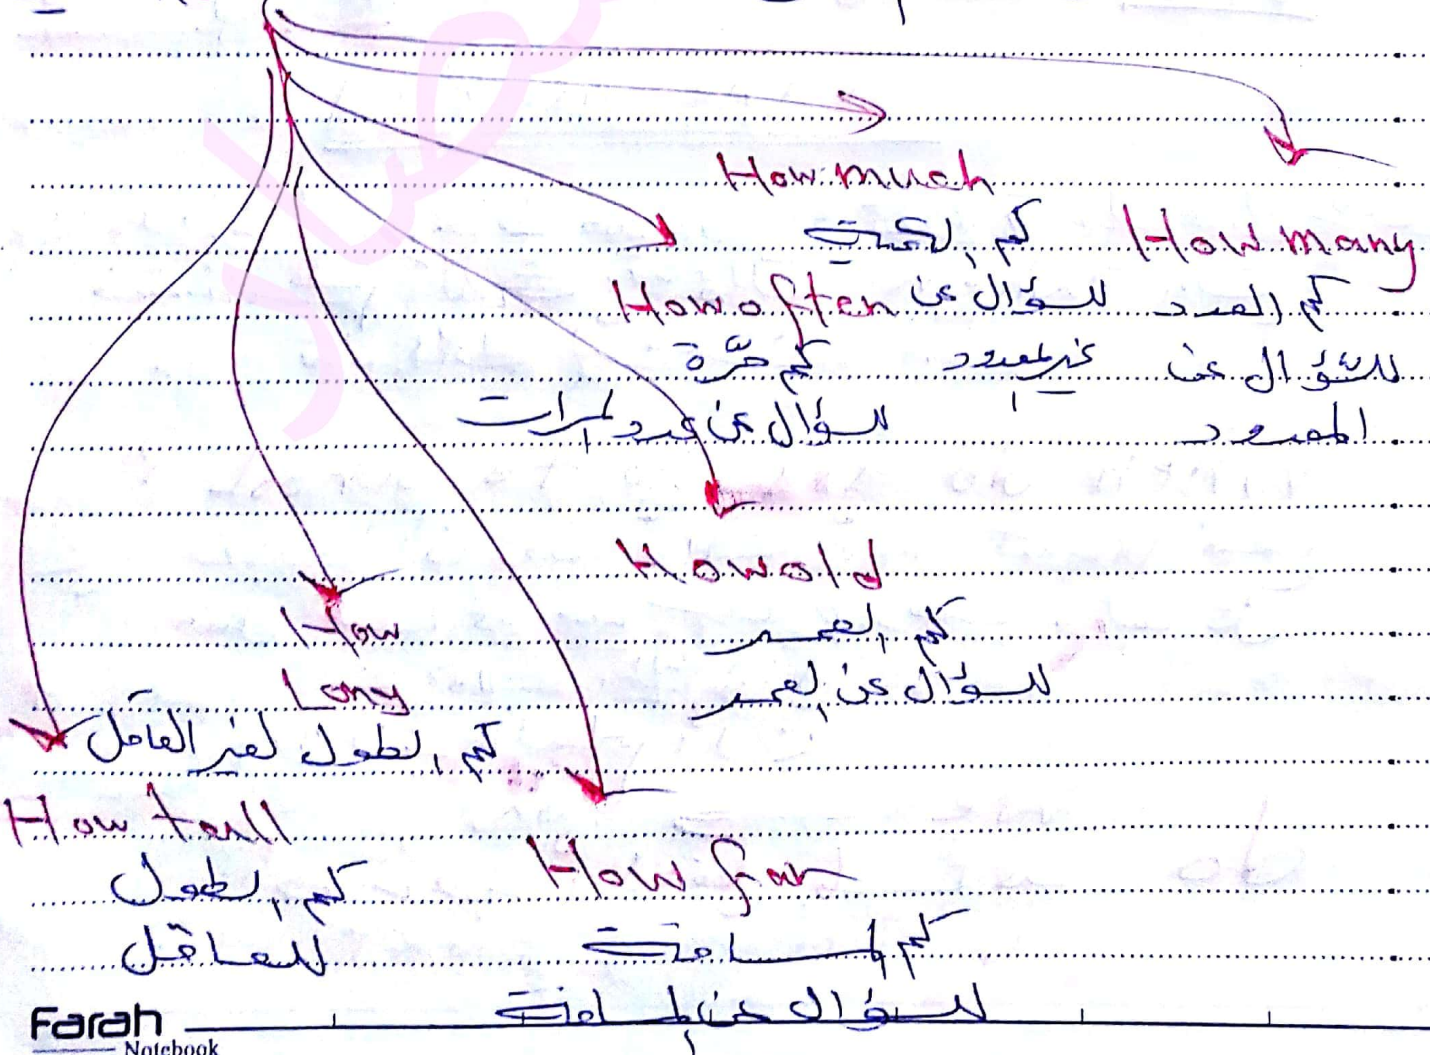 How much
كم الكمية
للسؤال عن
غير المعدود
How many
كم العدد
للسؤال عن
المعدود
How often
كم مرّة
للسؤال عن عدد المرات
How old
كم العمر
للسؤال عن العمر
How
Long
كم الطول لغير العاقل
How tall
كم الطول
للعاقل
How far
كم المسافة
للسؤال عن المسافة
Farah
Notebook